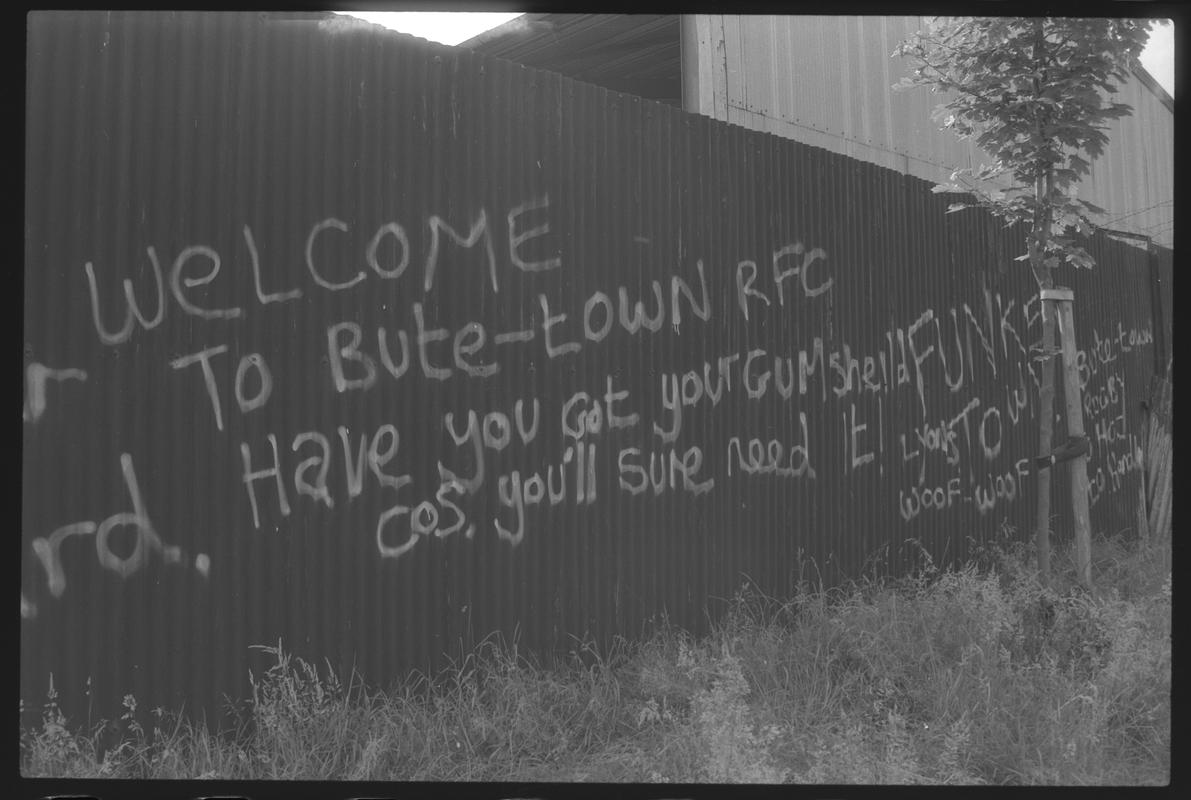 WeLCOME
To Bute-town RFC
Have you Got your GUMsheild
cos. you'll sure need it!
r
rd.
FUNKE
TOWN
Lyons
WOOF-WOOF
Bute-town
RUGBY
HOT